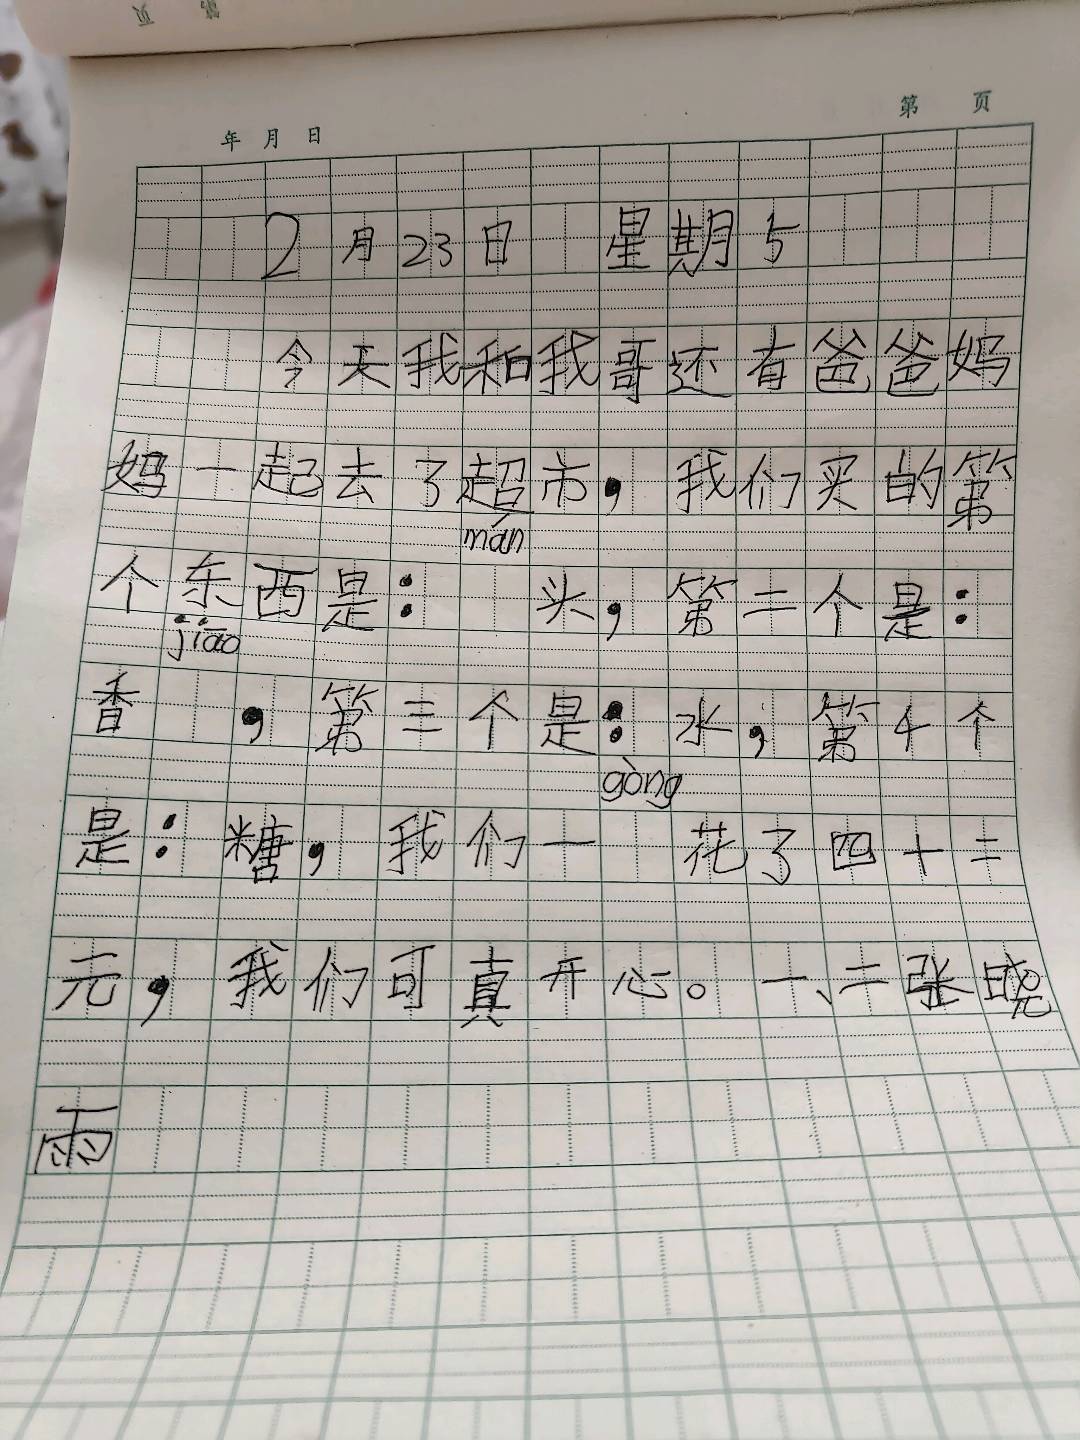 第 页
年 月 日 第 页
2月23日 星期5
今天我和我哥还有爸爸妈
妈一起去了超市，我们买的第
mán
个东西是： 头，第二个是：
jiāo
香 ，第三个是：水，第4个
gòng
是：糖，我们一 花了四十二
元，我们可真开心。一、二张晓
雨